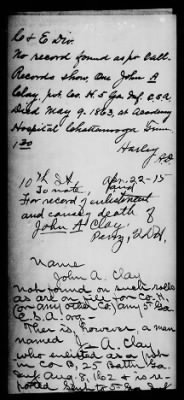 C & E Div.
No record found as pr call.
Records show one John A
Clay, pvt. Co. H. 5 Ga Inf. C.S.A.
Died May 9. 1863, at Academy
Hospital Chattanooga Tenn.
Harley
10th St. Apr. 22-15
To note, and
For record of enlistment
and cause of death of
John A Clay,
Name
John A. Clay
not found on such rolls
as are on file for Co. H,
(or any other Co.) any 5th Ga.
C.S.A. org.
There is, however, a man
named J. A. Clay
who enlisted as a pvt
in Co B, 25 Battn Ga.
Inf. Aug 8, 1862 & is re-
ported Sent to 5 Ga Inf